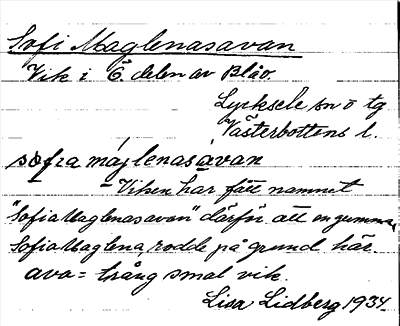 Sofi Maglenasavan
Vik i Ö. delen av Blåv.
Lycksele sn o tg
Västerbottens l.
sofra maglenasavan
Viken har fått namnet
"Sofia Maglenasavan" därför att en gumma,
Sofia Maglena, rodde på grund här.
ava = trång smal vik.
Lisa Lidberg 1934